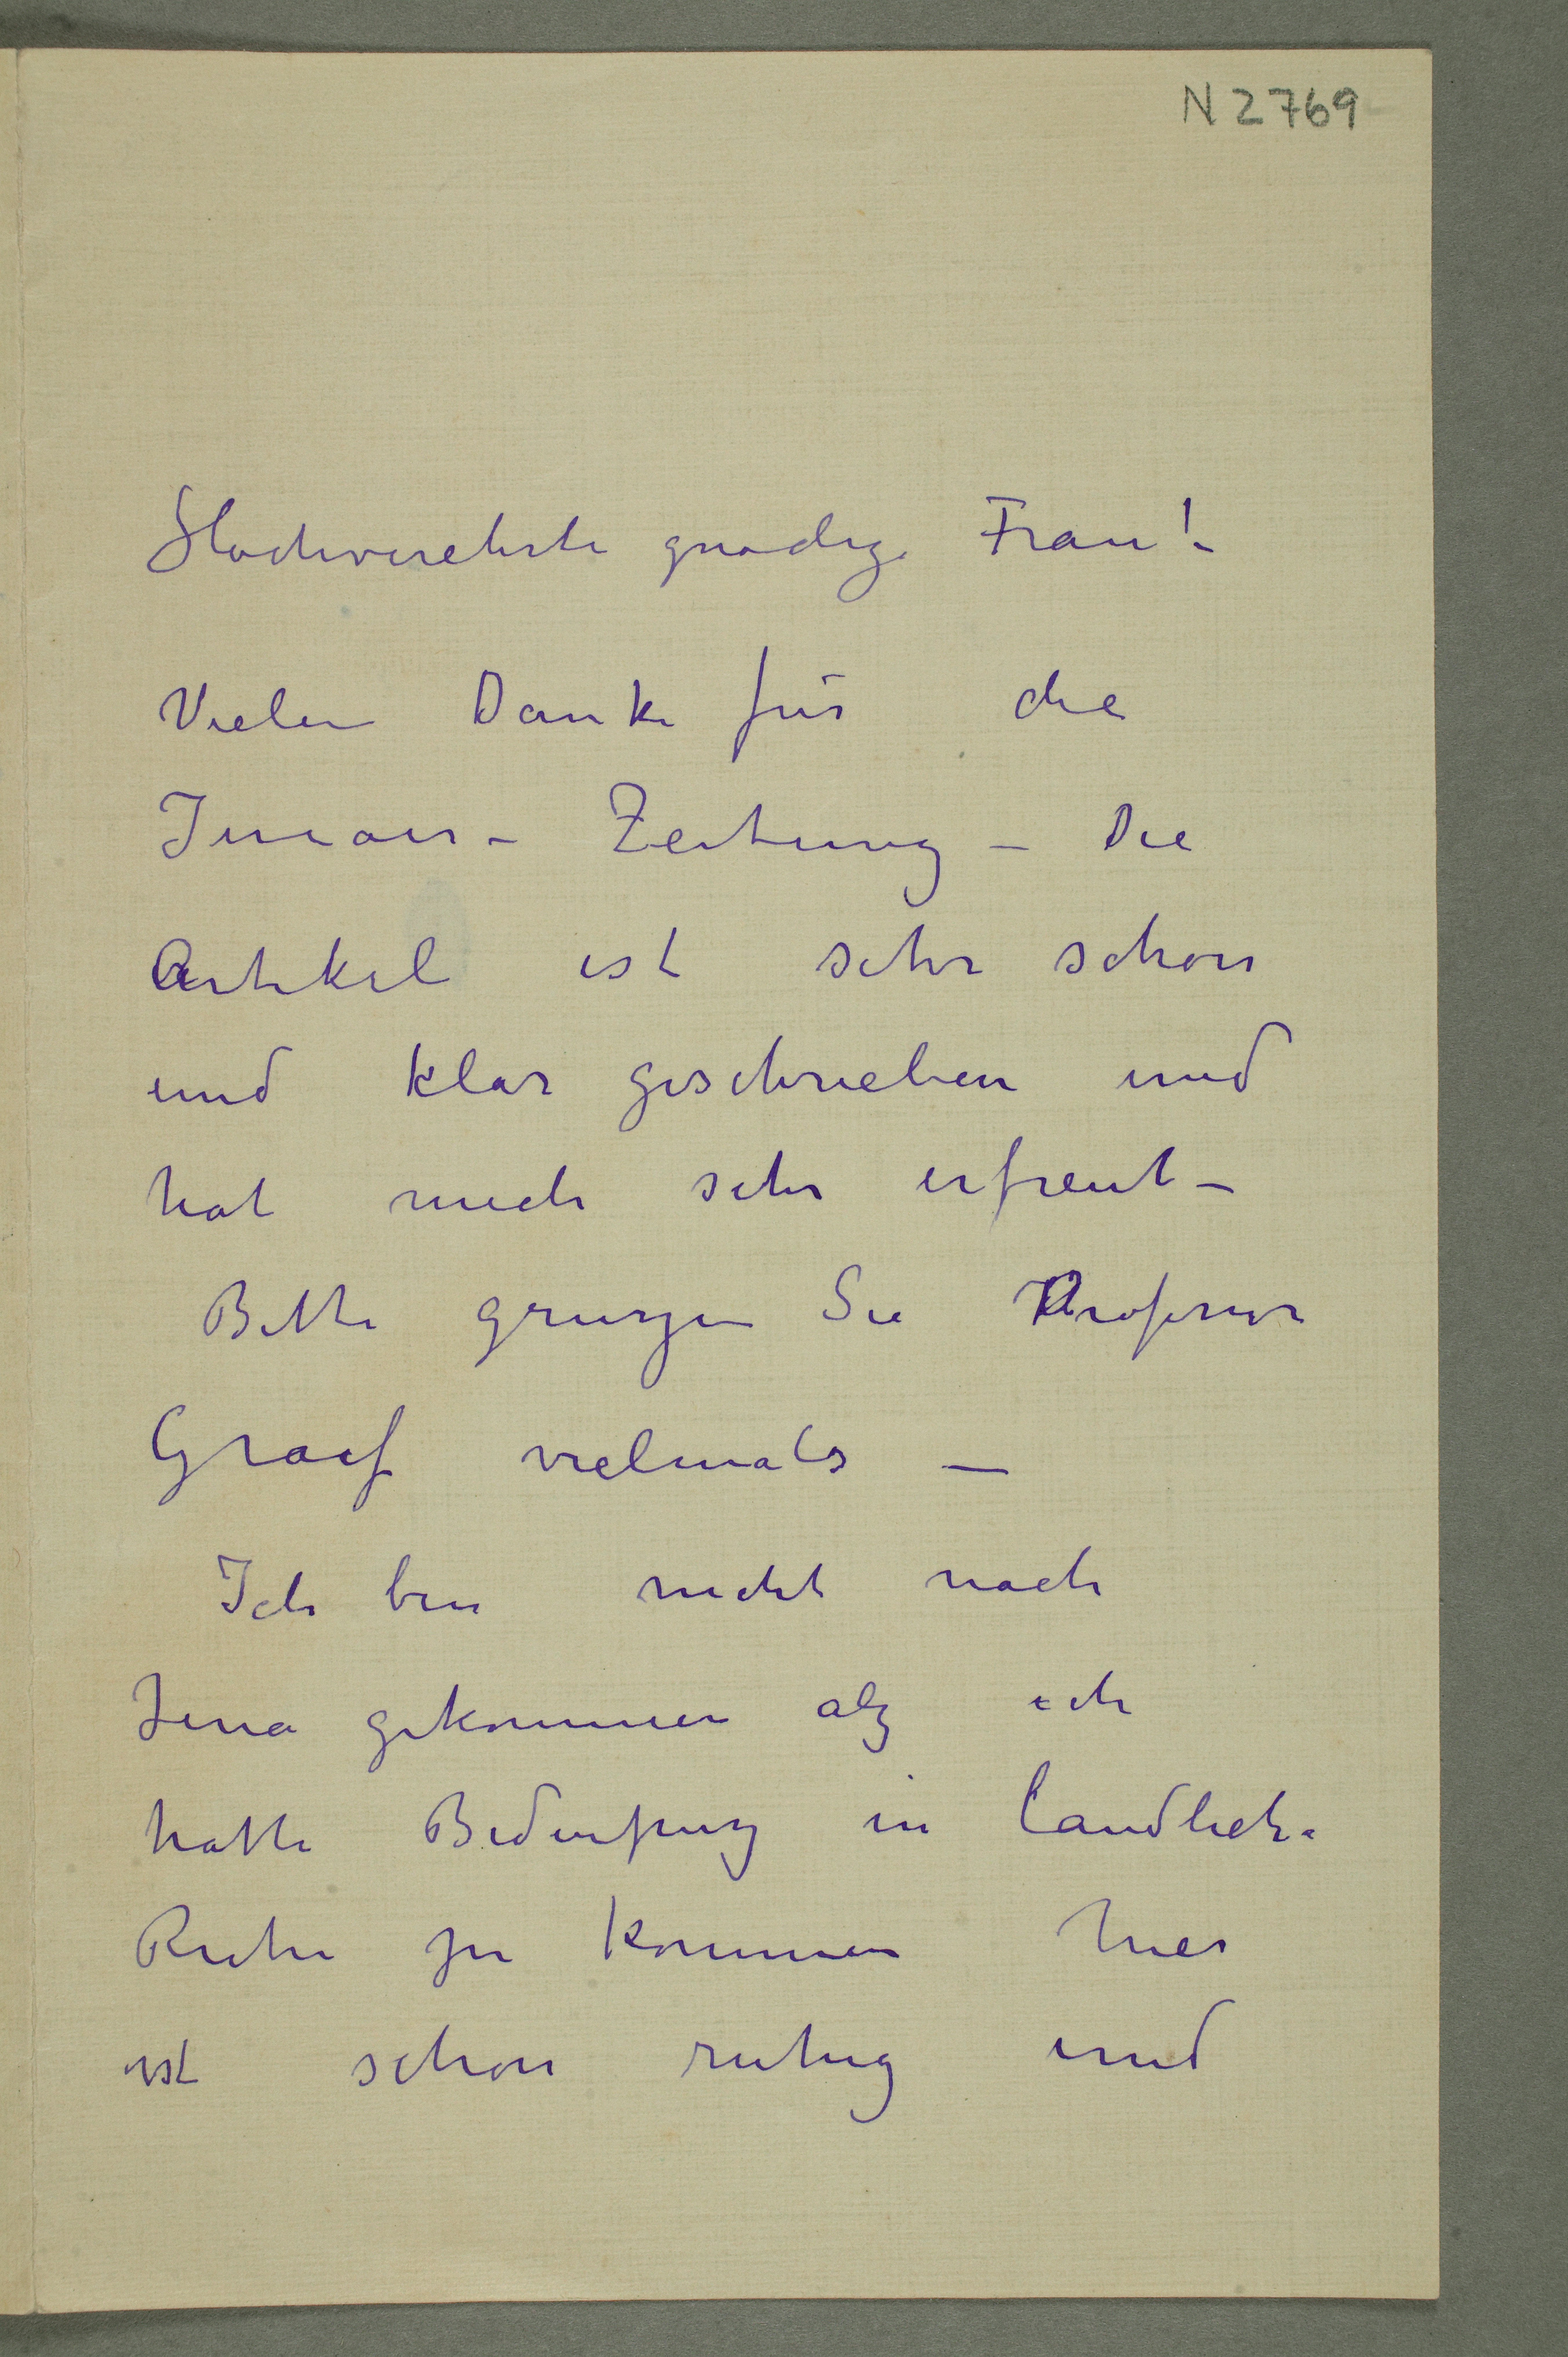 N 2769
Hochverehrte gnadige Frau! –
Vielen Danke für die
Jenaer – Zeitung – Die
Artikel ist sehr schon
und klar geschrieben und
hat mich sehr erfreut –
Bitte gruszen Sie Professor
Graef vielmals —
Ich bin nicht nach
Jena gekommen alz ich
hatte Bedurfnisz in landliche
Ruhe zu kommen hier
ist schon ruhig und